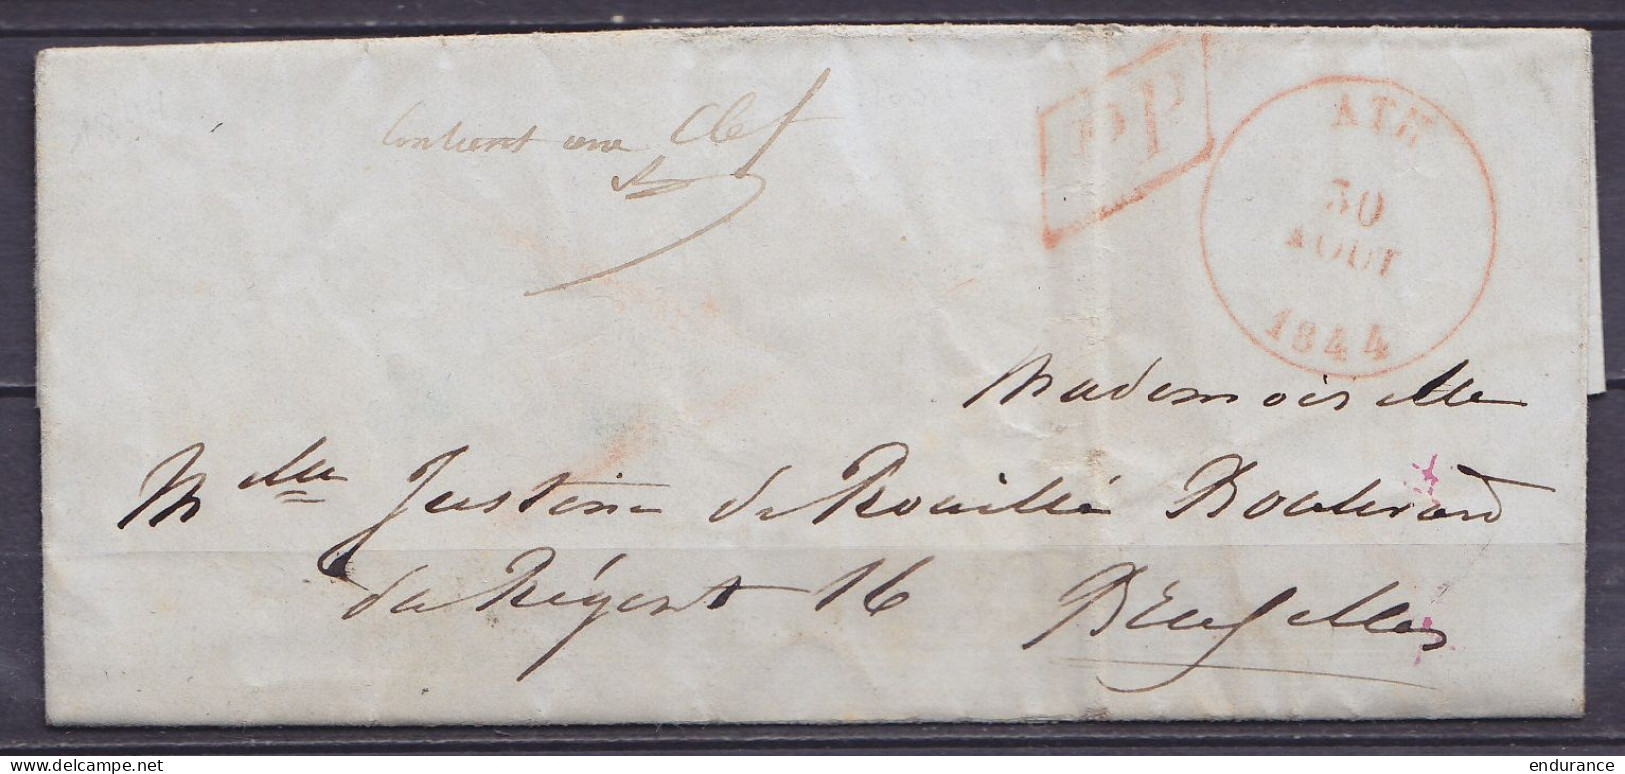 Contient une Clef
PP
ATH
30
AOUT
1844
Mademoiselle
Mlle Justine de Rouillé Boulevard
du Régent 16 Bruxelles
delcampe.net
endurance